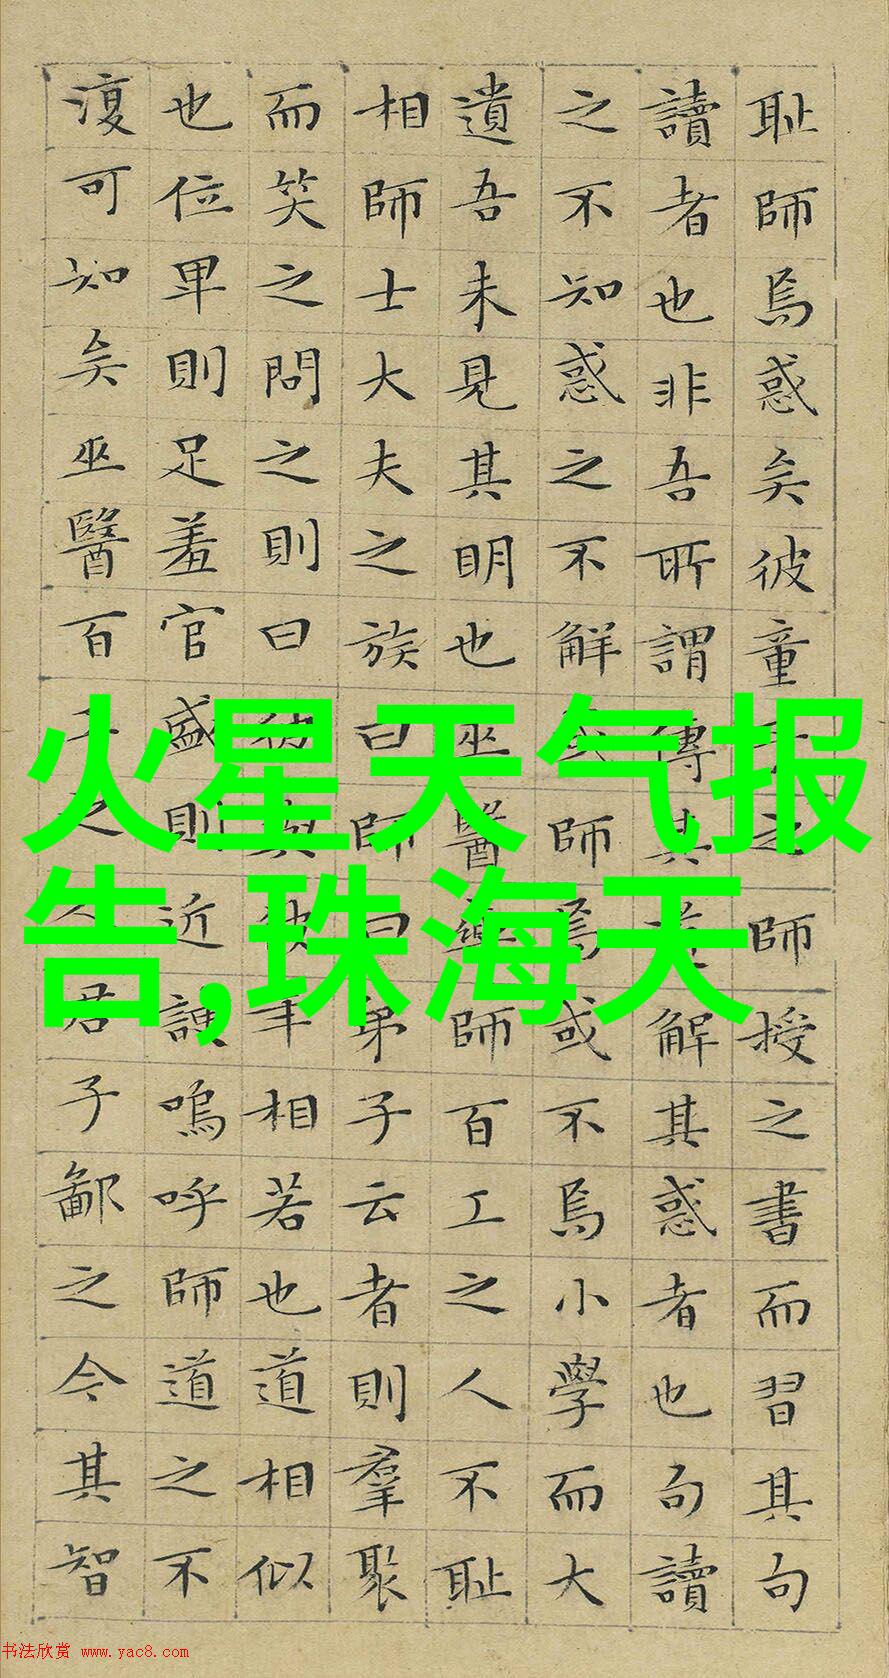 耻師焉惑矣彼童子之師授之書而習其句
讀者也非吾所謂傳其道解其惑者也句讀
之不知惑之不解或師焉或不焉小學而大
遺吾未見其明也巫醫樂師百工之人不耻
相師士大夫之族曰師曰弟子云者則羣聚
而笑之問之則曰彼與彼年相若也道相似
也位卑則足羞官盛則近諛嗚呼師道之不
復可知矣巫醫百工之人君子鄙之今其智
火星天气报
告,珠海天
书法欣赏 www.yac8.com